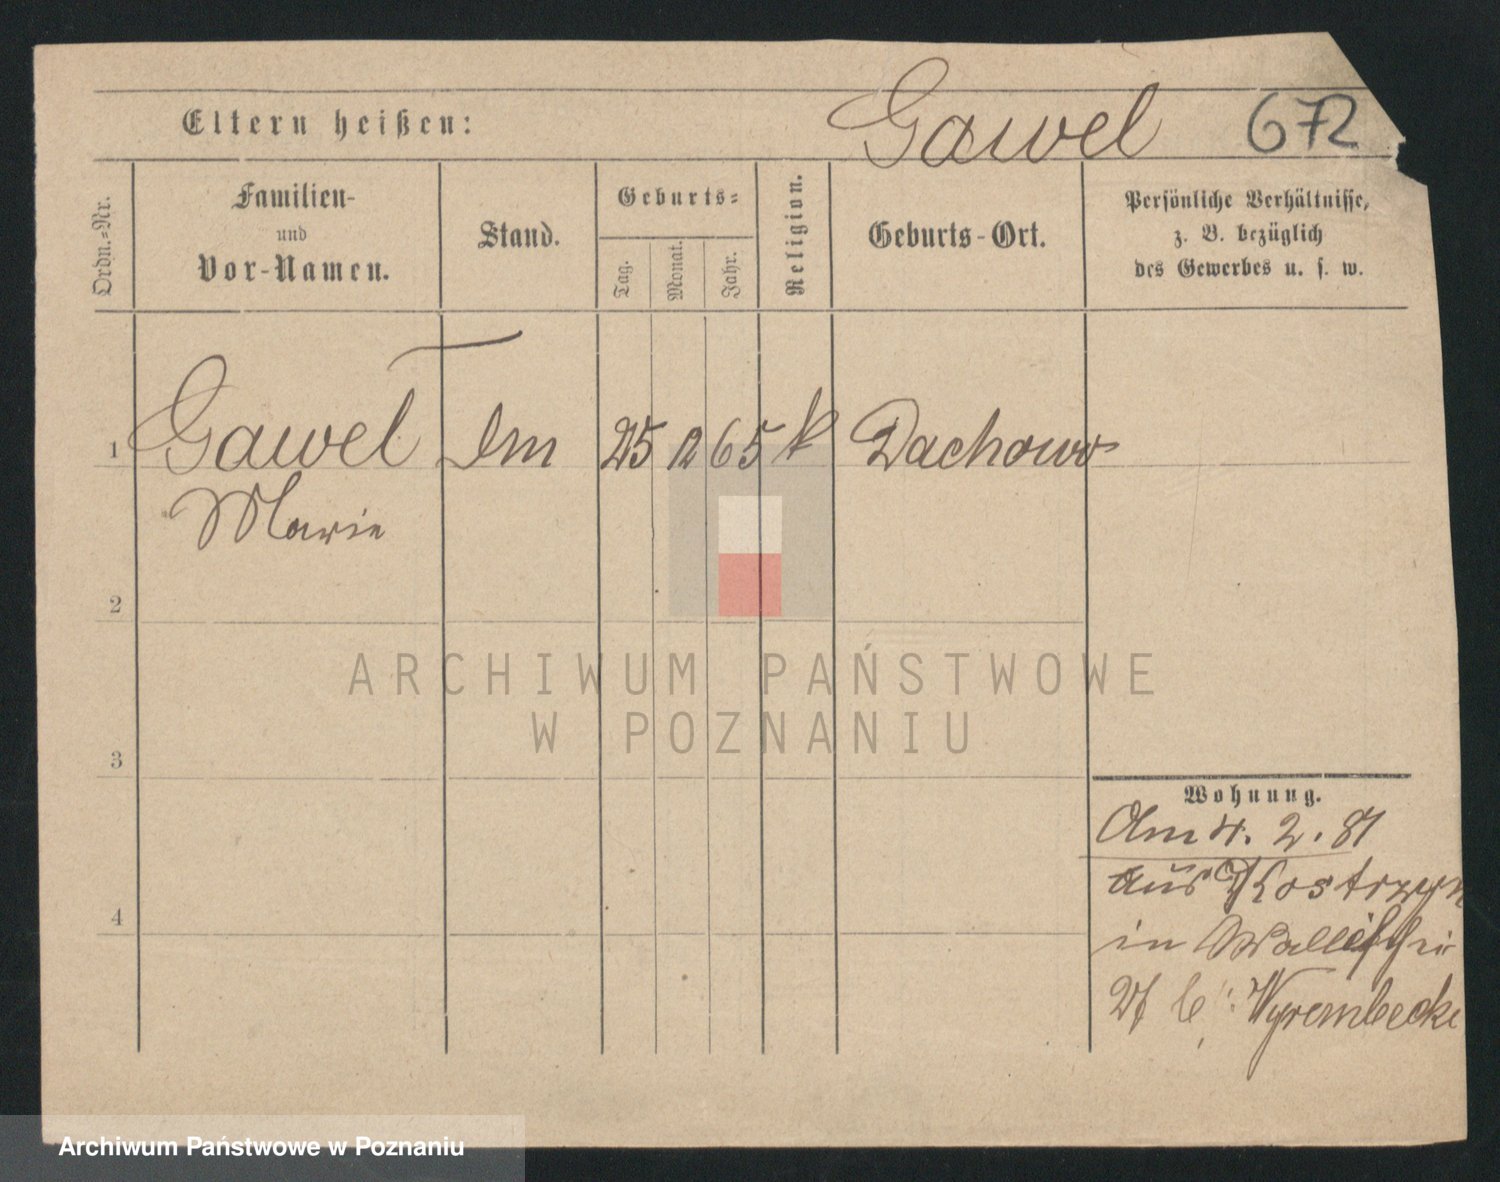 Eltern heißen:
Gawel 672
Ordn.=Nr.
Familien-
und
Vor-Namen.
Stand.
Geburts=
Tag.
Monat.
Jahr.
Religion.
Geburts-Ort.
Persönliche Verhältnisse,
z. B. bezüglich
des Gewerbes u. s. w.
1 Gawel 25 12 65 k Dachowo
Marie
2
3
4
Wohnung.
Am 2. 81
aus Kostrzyn
in Wallischei
Wyrembecke
ARCHIWUM PAŃSTWOWE
W POZNANIU
Archiwum Państwowe w Poznaniu